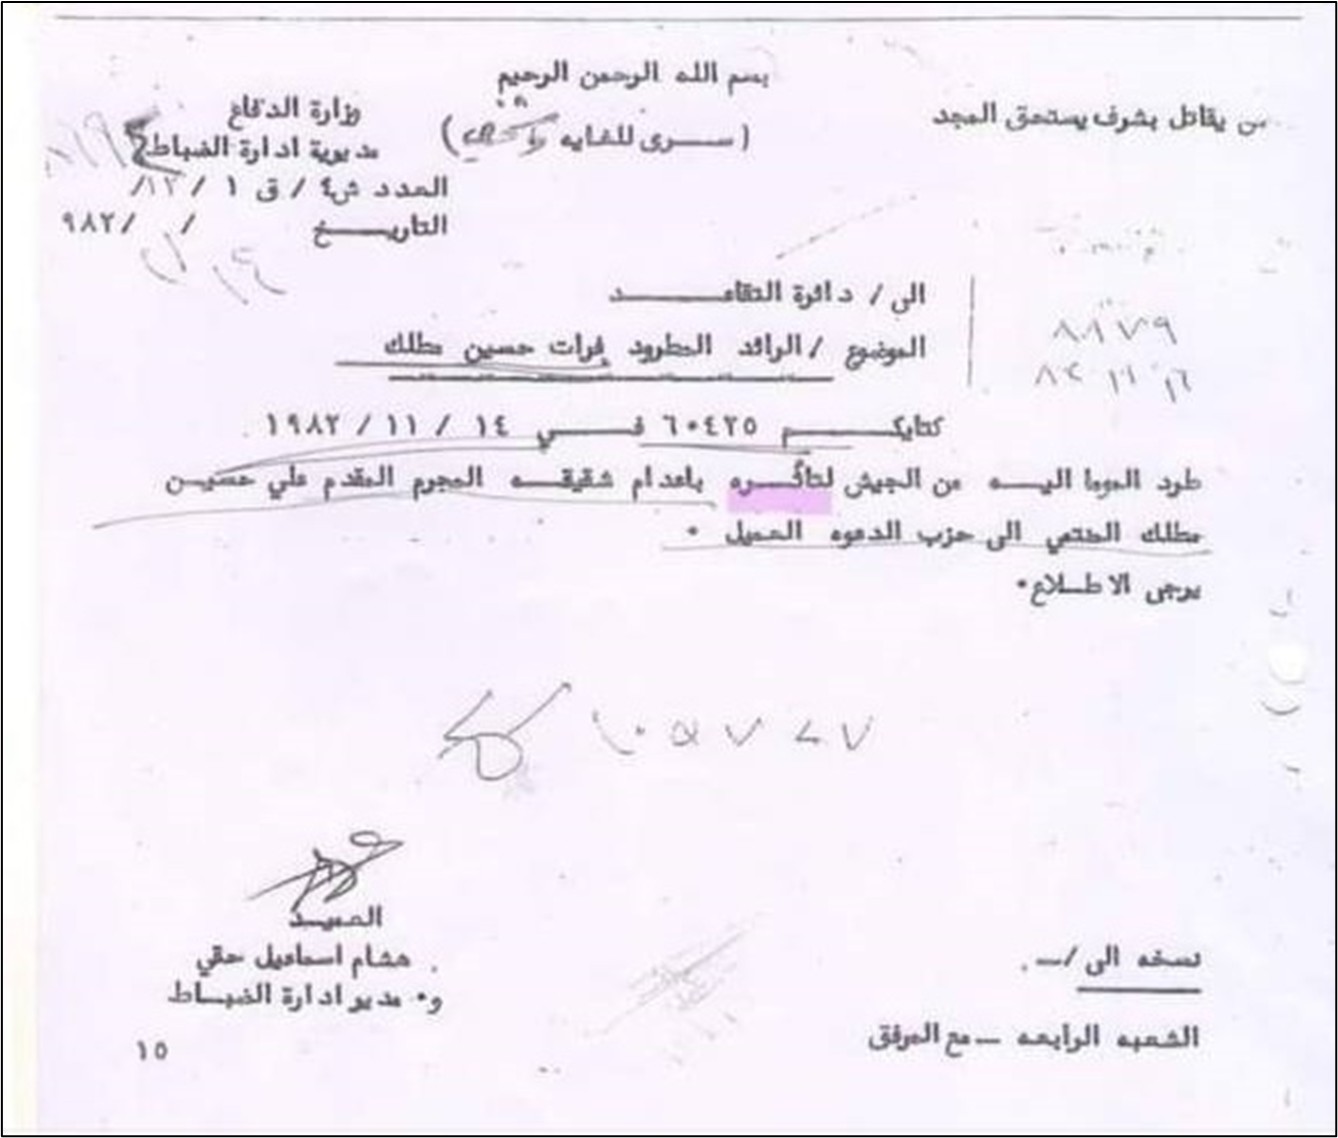 بسم الله الرحمن الرحيم
من يقاتل بشرف يستحق المجد
(سـرى للغايه
وزارة الدفاع
مديرية ادارة الضباط
العدد ش٤ / ق ١ / ١٢/
التاريـــخ / /٩٨٢
الى / دائرة التقاعــــــد
الموضوع / الرائد المطرود فرات حسين مطلك
٨٨٧٩
كتابكــــــم ٦٠٤٢٥ فــــــي ١٤ / ١١ / ١٩٨٢ .
طرد الموما اليـــه من الجيش لتأثـــره باعدام شقيقـــه المجرم المقدم علي حسيـن
مطلك المنتمي الى حزب الدعوه العميل .
يرجى الاطـلاع.
العميـــد
هشام اسماعيل حقي
و. مدير ادارة الضبــاط
نسخه الى /ــ
الشعبه الرابعه ــ مع المرفق
١٥